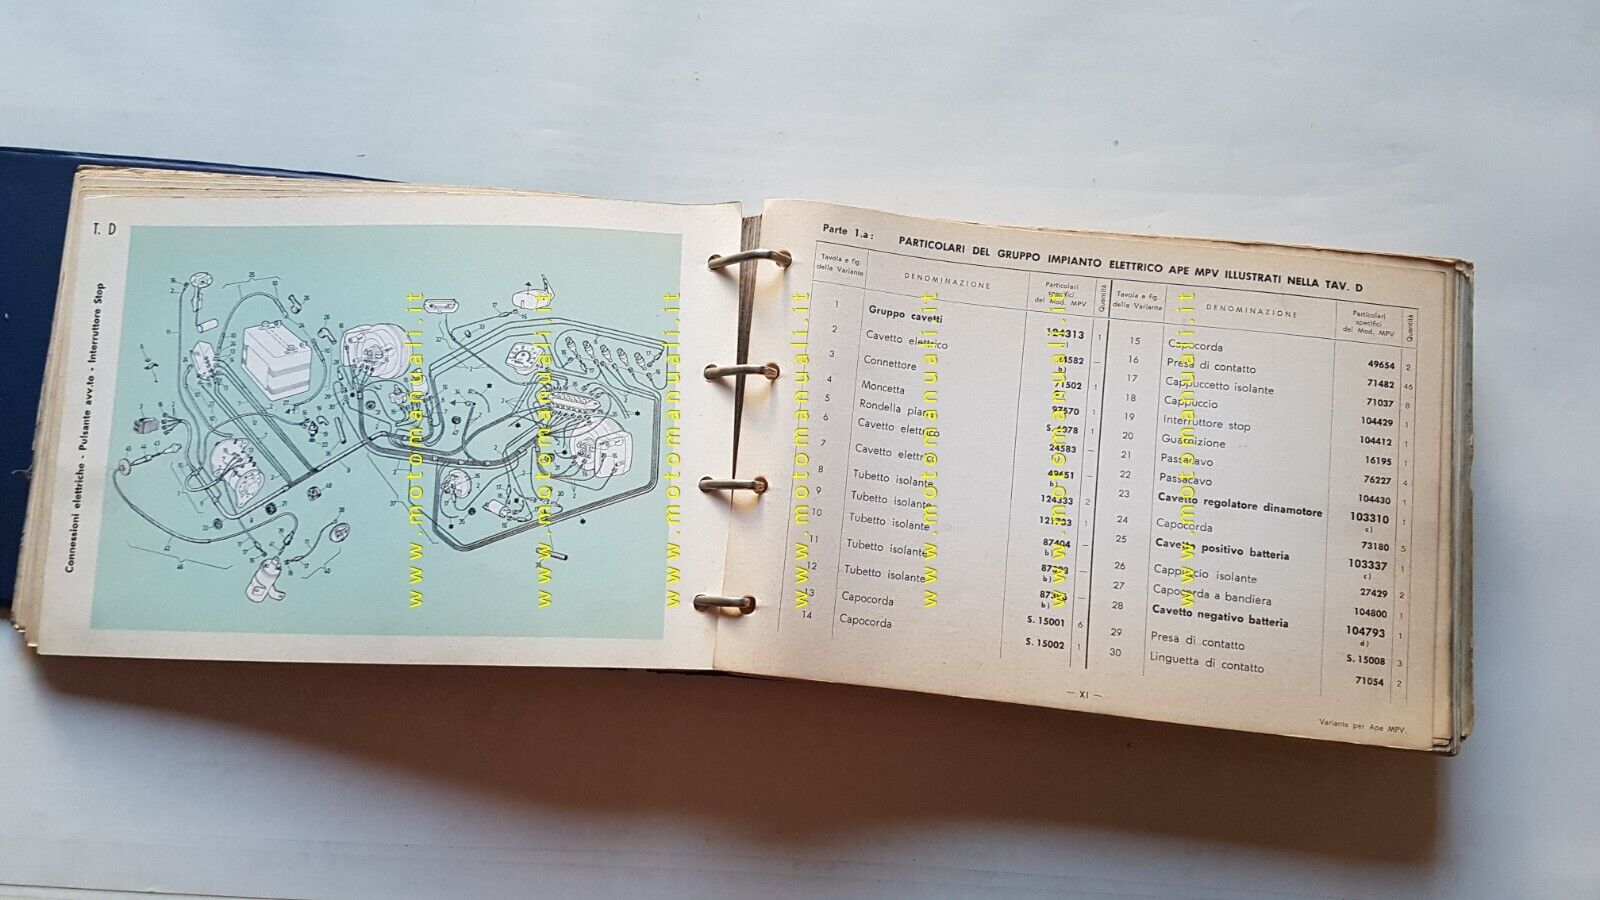 T. D
Connessioni elettriche - Pulsante avv.to - Interruttore Stop
Parte 1.a: PARTICOLARI DEL GRUPPO IMPIANTO ELETTRICO APE MPV ILLUSTRATI NELLA TAV. D
Tavola e fig. della Variante DENOMINAZIONE Particolari specifici del Mod. MPV Quantità
1 Gruppo cavetti 1
2 Cavetto elettrico b) —
3 Connettore 71502 1
4 Moncetta 1
5 Rondella piana 1
6 Cavetto elettrico 24583 b) —
7 Cavetto elettrico b) —
8 Tubetto isolante 2
9 Tubetto isolante 1
10 Tubetto isolante b) —
11 Tubetto isolante b) —
12 Tubetto isolante b) —
13 Capocorda S. 15001 6
14 Capocorda S. 15002 1
Tavola e fig. della Variante DENOMINAZIONE Particolari specifici del Mod. MPV Quantità
15 Capocorda 49654 2
16 Presa di contatto 71482 46
17 Cappuccetto isolante 71037 8
18 Cappuccio 104429 1
19 Interruttore stop 104412 1
20 Guarnizione 16195 1
21 Passacavo 76227 4
22 Passacavo 104430 1
23 Cavetto regolatore dinamotore 103310 c) 1
24 Capocorda 73180 5
25 Cavetto positivo batteria 103337 c) 1
26 Cappuccio isolante 27429 2
27 Capocorda a bandiera 104800 1
28 Cavetto negativo batteria 104793 d) 1
29 Presa di contatto S. 15008 3
30 Linguetta di contatto 71054 2
— XI —
Variante per Ape MPV.
www.motomanuali.it
www.motomanuali.it
www.motomanuali.it
www.motomanuali.it
www.motomanuali.it
www.motomanuali.it
www.motomanuali.it